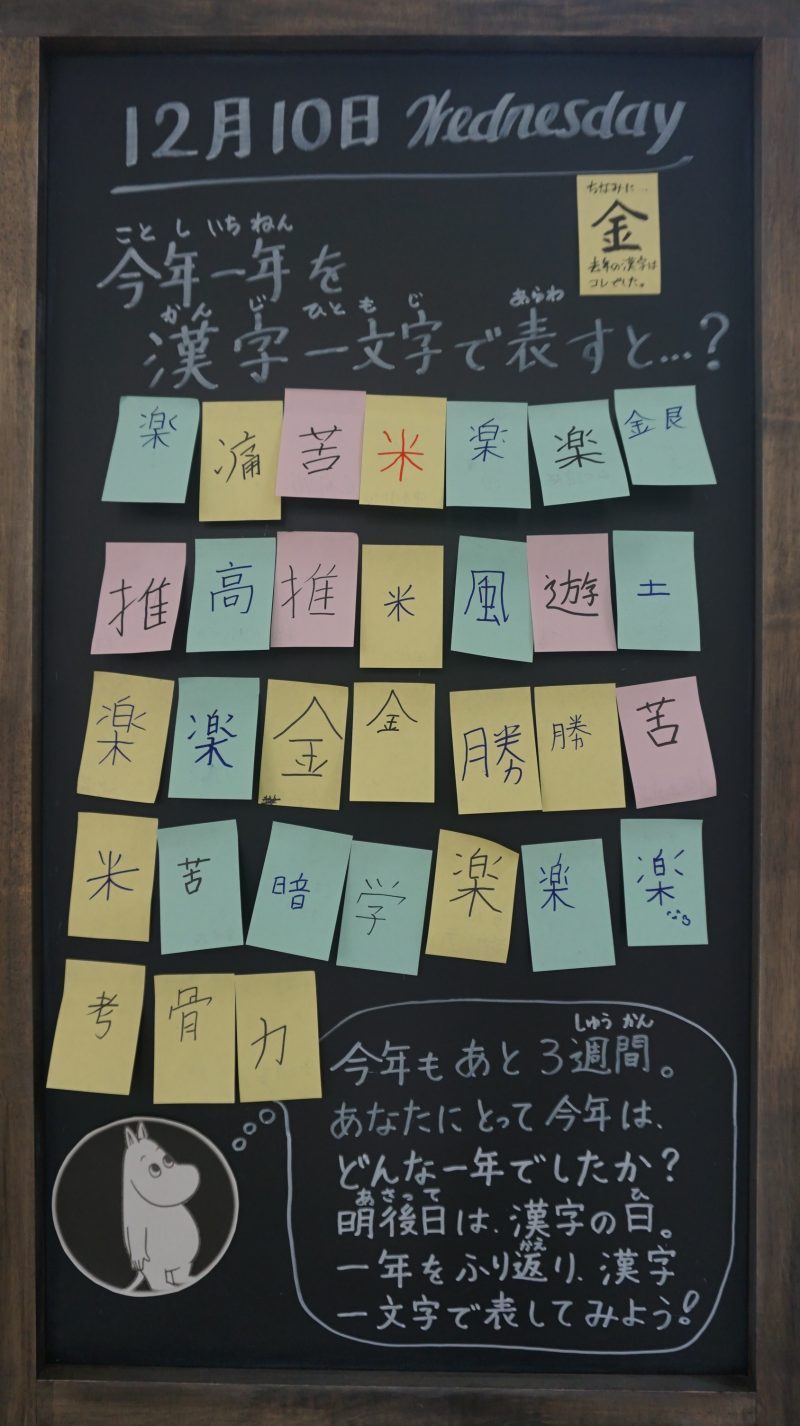 12月10日 Wednesday
ちなみに…
金
去年の漢字は
コレでした。
ことしいちねん
今年一年を
かんじひともじあらわ
漢字一文字で表すと…？
楽 痛 苦 米 楽 楽 金艮
推 高 推 米 風 遊 土
楽 楽 金 金 勝 勝 苦
米 苦 暗 学 楽 楽 楽
考 骨 力
しゅうかん
今年もあと3週間。
あなたにとって今年は、
どんな一年でしたか？
あさって ひ
明後日は、漢字の日。
かえ
一年をふり返り、漢字
一文字で表してみよう！